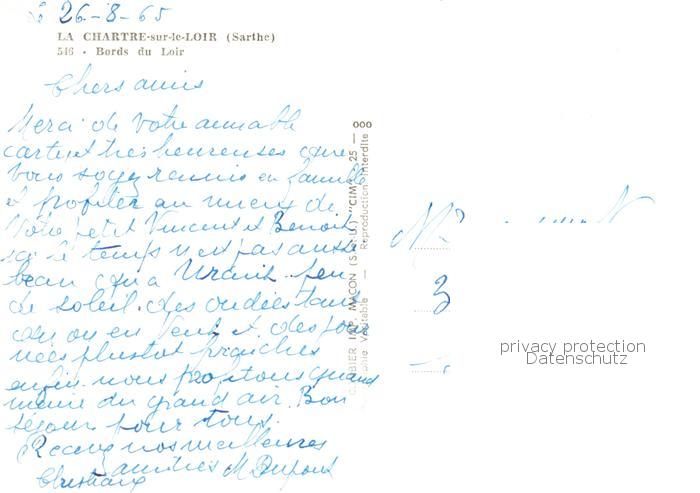 Le 26-8-65
LA CHARTRE-sur-le-LOIR (Sarthe)
546 - Bords du Loir
Chers amis
Merci de votre aimable
carte et très heureuses que
vous soyez réunis en famille
et profiter au mieux de
votre petit Vincent et Benoit
ici le temps n'est pas aussi
beau qu'a peu
de soleil. des ondées tant
qu'on en veut et des jour
nées plustot fraiches
enfin nous profitons quand
même du grand air. Bon
séjour pour tous.
Recevez nos meilleures
amitiés M Dupont
Christiane
IMP. MACON (S.-et-L.) "CIM" 25 — 000
Véritable — Reproduction interdite
3
privacy protection
Datenschutz